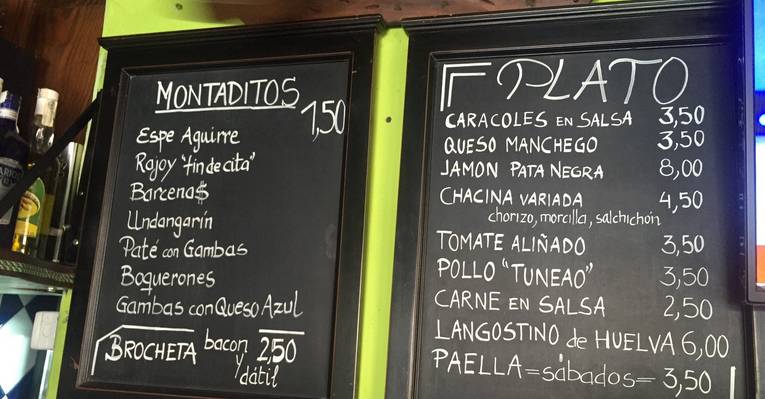 MONTADITOS
1,50
Espe Aguirre
Rajoy "fin de cita"
Barcena$
Undangarín
Paté con Gambas
Boquerones
Gambas con Queso Azul
BROCHETA bacon y dátil 2,50
PLATO
CARACOLES EN SALSA 3,50
QUESO MANCHEGO 3,50
JAMON PATA NEGRA 8,00
CHACINA VARIADA 4,50
chorizo, morcilla, salchichón
TOMATE ALIÑADO 3,50
POLLO "TUNEAO" 3,50
CARNE EN SALSA 2,50
LANGOSTINO de HUELVA 6,00
PAELLA = sábados = 3,50